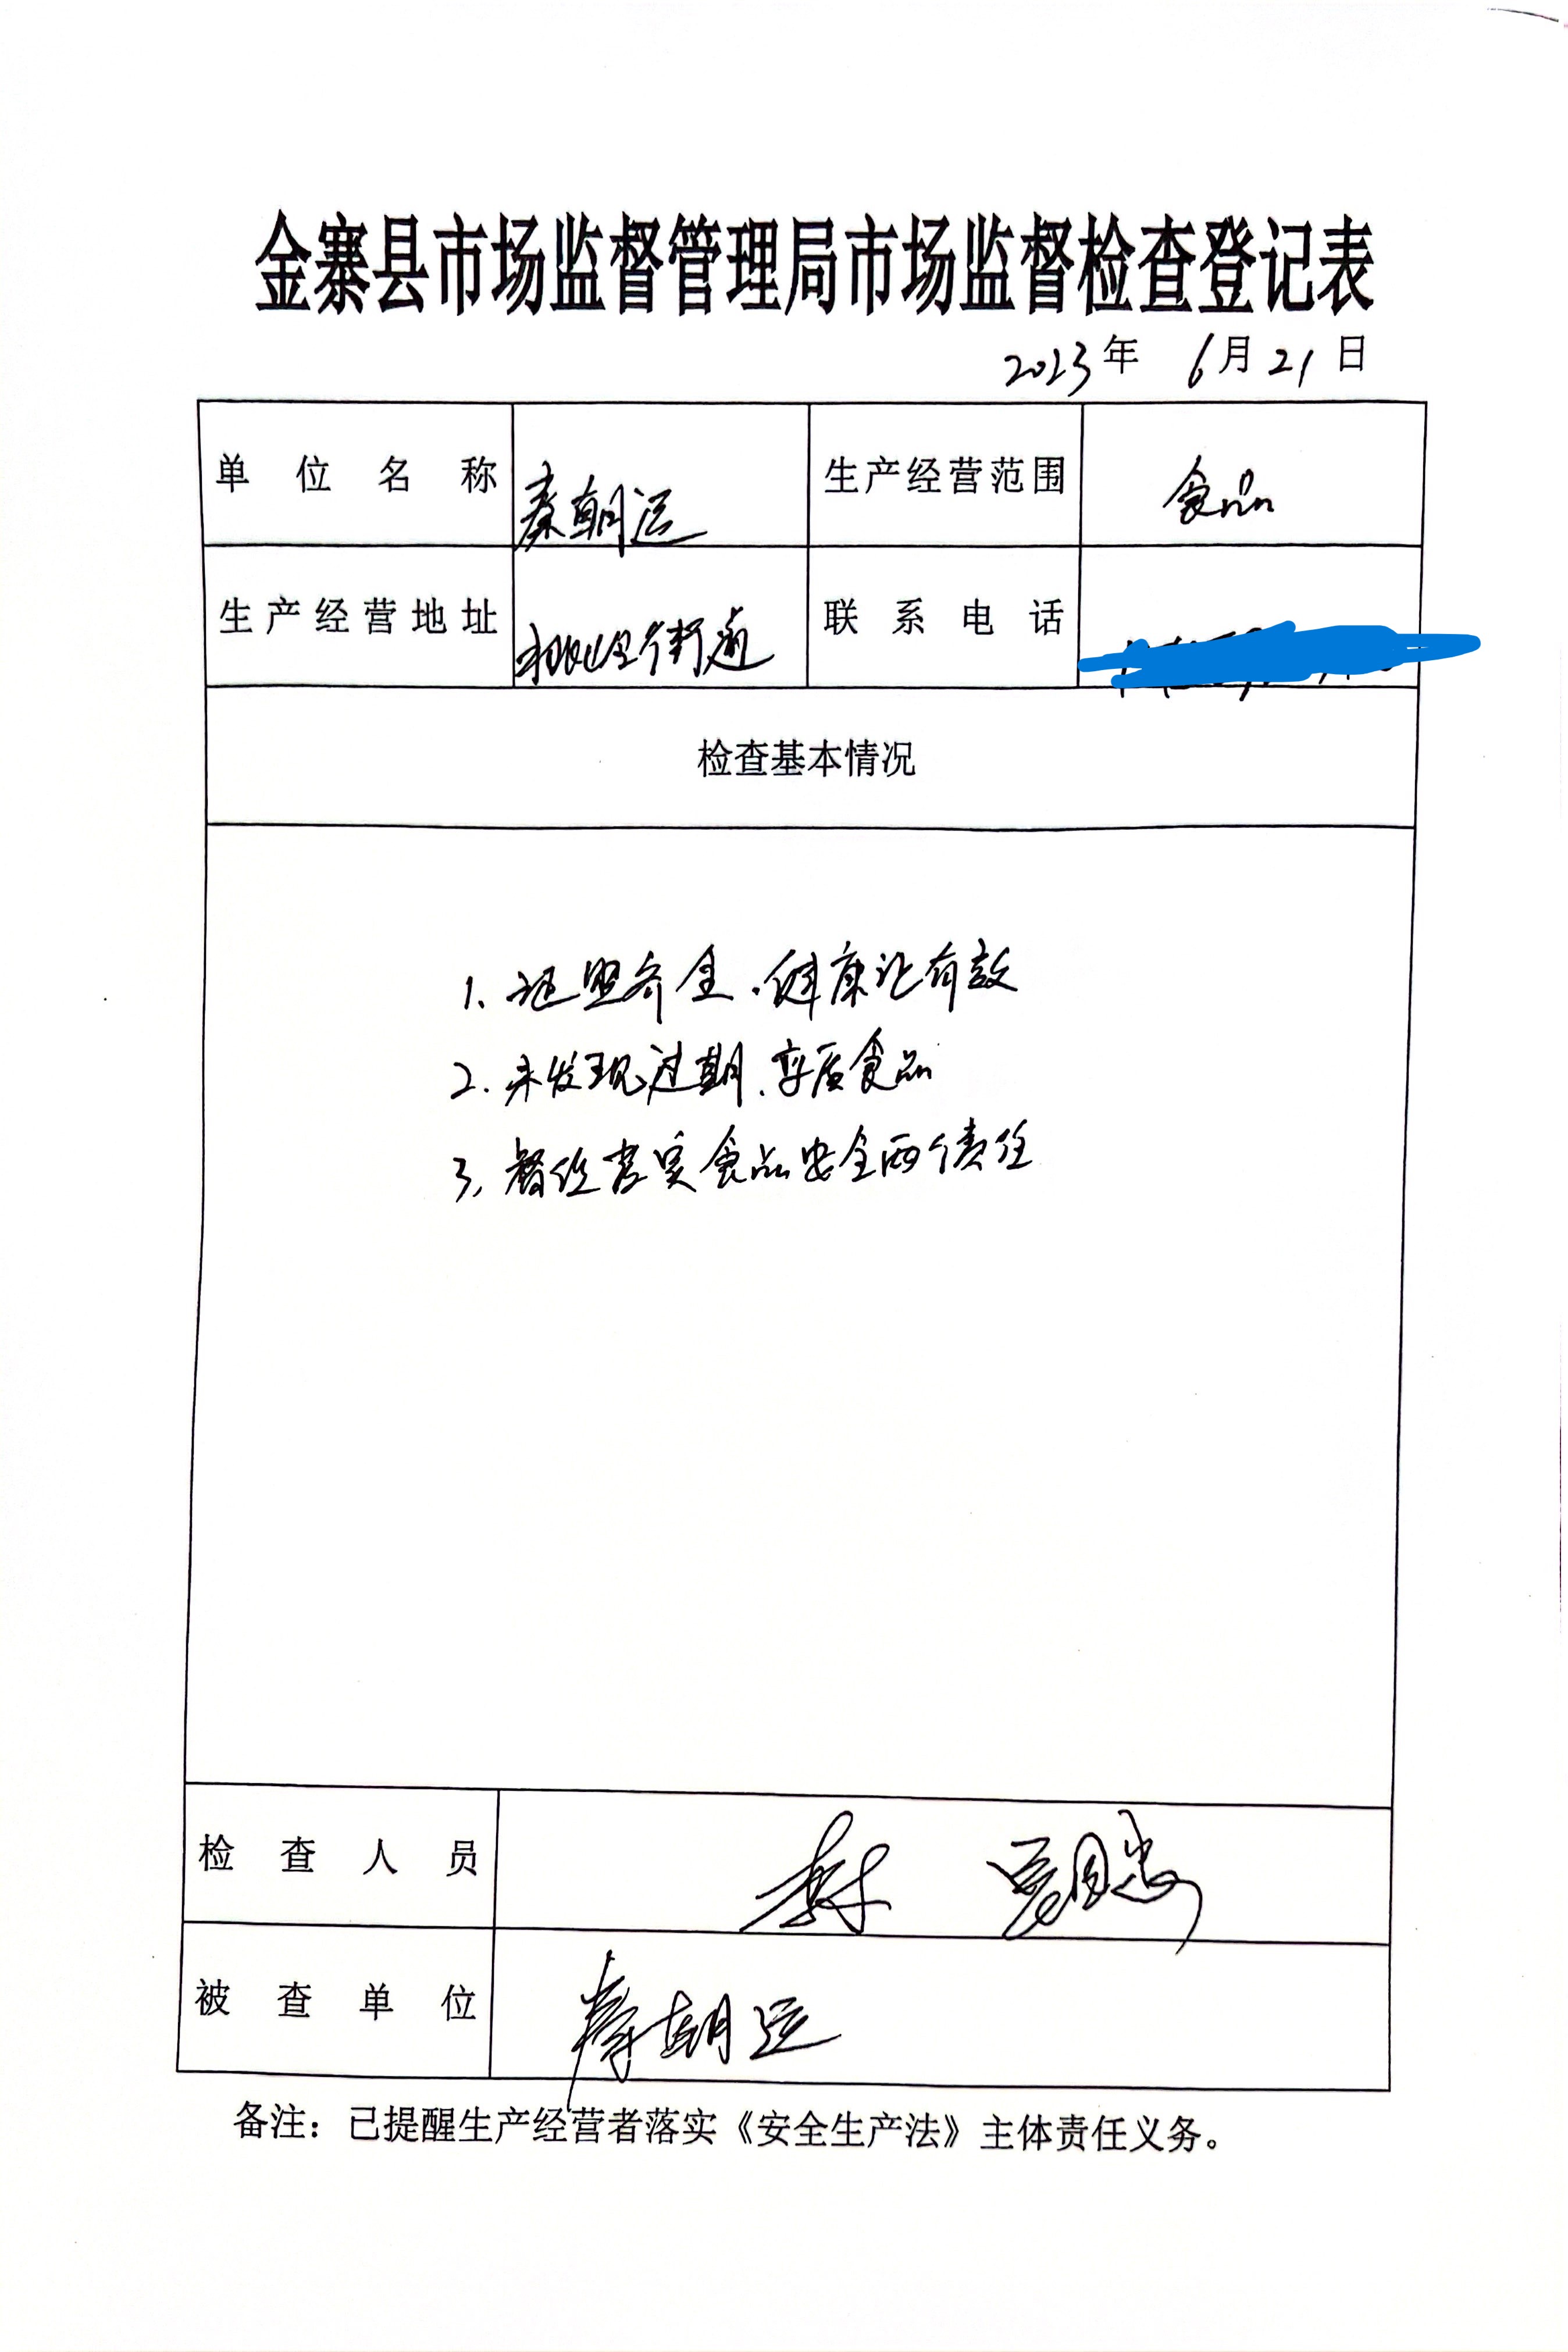 金寨县市场监督管理局市场监督检查登记表
2023年 6月21日
单位名称 秦朝运 生产经营范围 食品
生产经营地址 桃岭街道 联系电话
检查基本情况
1、证照齐全.健康证有效
2.未发现过期、变质食品
3、督促落实食品安全两个责任
检查人员
被查单位 秦朝运
备注：已提醒生产经营者落实《安全生产法》主体责任义务。